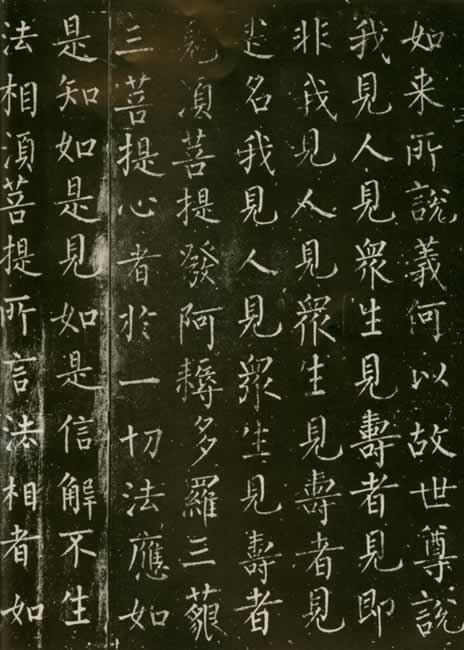 如来所說義何以故世尊說
我見人見衆生見壽者見即
非我見人見衆生見壽者見
是名我見人見衆生見壽者
見湏菩提發阿耨多羅三藐
三菩提心者於一切法應如
是知如是見如是信解不生
法相湏菩提所言法相者如